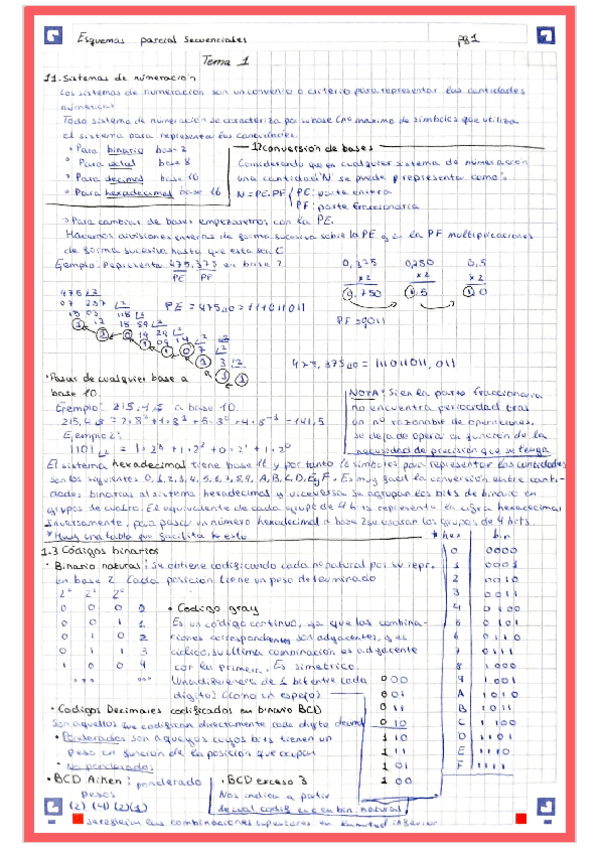 Esquemas parcial Secuenciales pg 1
Tema 1
1.1. Sistemas de numeración
Los sistemas de numeración son un convenio o criterio para representar las cantidades
numéricas
Todo sistema de numeración se caracteriza por su base (nº máximo de símbolos que utiliza
el sistema para representar las cantidades.
• Para binario base 2
• Para octal base 8
• Para decimal base 10
• Para hexadecimal base 16
1.2 Conversión de bases
Considerando que en cualquier sistema de numeración
una cantidad 'N' se puede representar como:
N = PE.PF { PE: parte entera
PF: parte fraccionaria
→ Para cambiar de bases empezaremos con la PE.
Hacemos divisiones enteras de forma sucesiva sobre la PE y en la PF multiplicaciones
de forma sucesiva hasta que esta sea 0
Ejemplo: Representa 475,375 en base 2
PE PF
0,375 0,750 0,5
x2 x2 x2
0.750 1.5 1.0
PE = 475 = 111011011
PF = 011
= 111011011, 011
• Pasar de cualquier base a
base 10.
Ejemplo: a base 10
Ejemplo 2:
1101
NOTA: Si en la parte fraccionaria
no encuentra periocidad tras
un nº razonable de operaciones,
se deja de operar en función de la
necesidad de precisión que se tenga
El sistema hexadecimal tiene base 16 y por tanto 16 símbolos para representar las cantidades
son los siguientes 0, 1, 2, 3, 4, 5, 6, 7, 8, 9, A, B, C, D, E y F. Es muy facil la conversión entre canti-
dades binarias al sistema hexadecimal y viceversa. Se agrupan los bits de binario en
grupos de cuatro. El equivalente de cada grupo de 4 b is representa la cifra hexadecimal
Inversamente, para pasar un número hexadecimal a base 2 se usaran los grupos de 4 bits.
* Hay una tabla que facilita esto
* hex bin
0 0000
1 0001
2 0010
3 0011
4 0100
5 0101
6 0110
7 0111
8 1000
9 1001
A 1010
B 1011
C 1100
D 1101
E 1110
F 1111
1.3 Códigos binarios
• Binario natural: Se obtiene codificando cada nº natural por su repr.
en base 2. Cada posición tiene un peso determinado
2² 2¹ 2⁰
0 0 0 0
0 0 1 1
0 1 0 2
0 1 1 3
1 0 0 4
• Codigo gray
Es un código continuo, ya que las combina-
ciones correspondientes son adyacentes, y es
cíclico, su última combinación es adyacente
con la primera. Es simetrico.
de 1 bit entre cada
digito) (como un espejo)
000
001
011
010
110
111
101
100
• Codigos Decimales codificados en binario BCD
Son aquellos que codifican directamente cada digito decimal
• Ponderados son aquellos cuyos bits tienen un
peso en función de la posición que ocupan
• No ponderados:
• BCD Aiken: ponderado
pesos
(2) (4) (2) (1)
• BCD exceso 3
Nos indica a partir
de cual codig en bin natural
las combinaciones superiores en